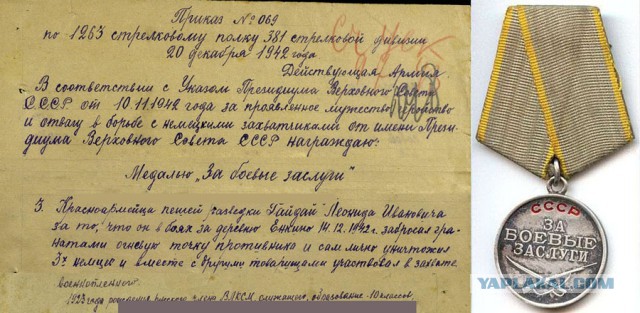 Приказ № 069
по 1263 стрелковому полку 381 стрелковой дивизии
20 декабря 1942 года
Действующая Армия.
В соответствии с Указом Президиума Верховного Совета
СССР от 10.11.1942 года за проявленное мужество
и отвагу в борьбе с немецкими захватчиками от имени Прези-
диума Верховного Совета СССР награждаю:
Медалью „За боевые заслуги"
3. Красноармейца пешей разведки Гайдай Леонида Ивановича
за то, что он в боях за деревню Енкино 14.12.1942г. забросал гра-
натами огневую точку противника и сам лично уничтожил
3х немцев и вместе с другими товарищами участвовал в захвате
военнопленного.
1923 года рождения, русского, члена ВЛКСМ, служащего, образование - 10 классов
СССР
ЗА
БОЕВЫЕ
ЗАСЛУГИ
YAPLAKAL.COM